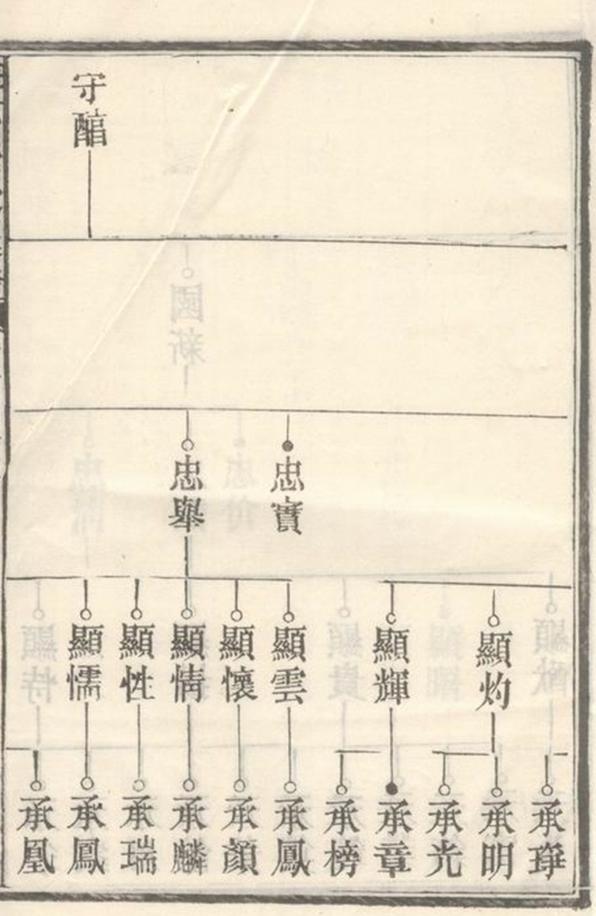 守醕
忠實
忠舉
顯灼
顯輝
顯雲
顯懷
顯情
顯性
顯懦
承琤
承明
承光
承章
承榜
承鳳
承顏
承麟
承瑞
承鳳
承凰